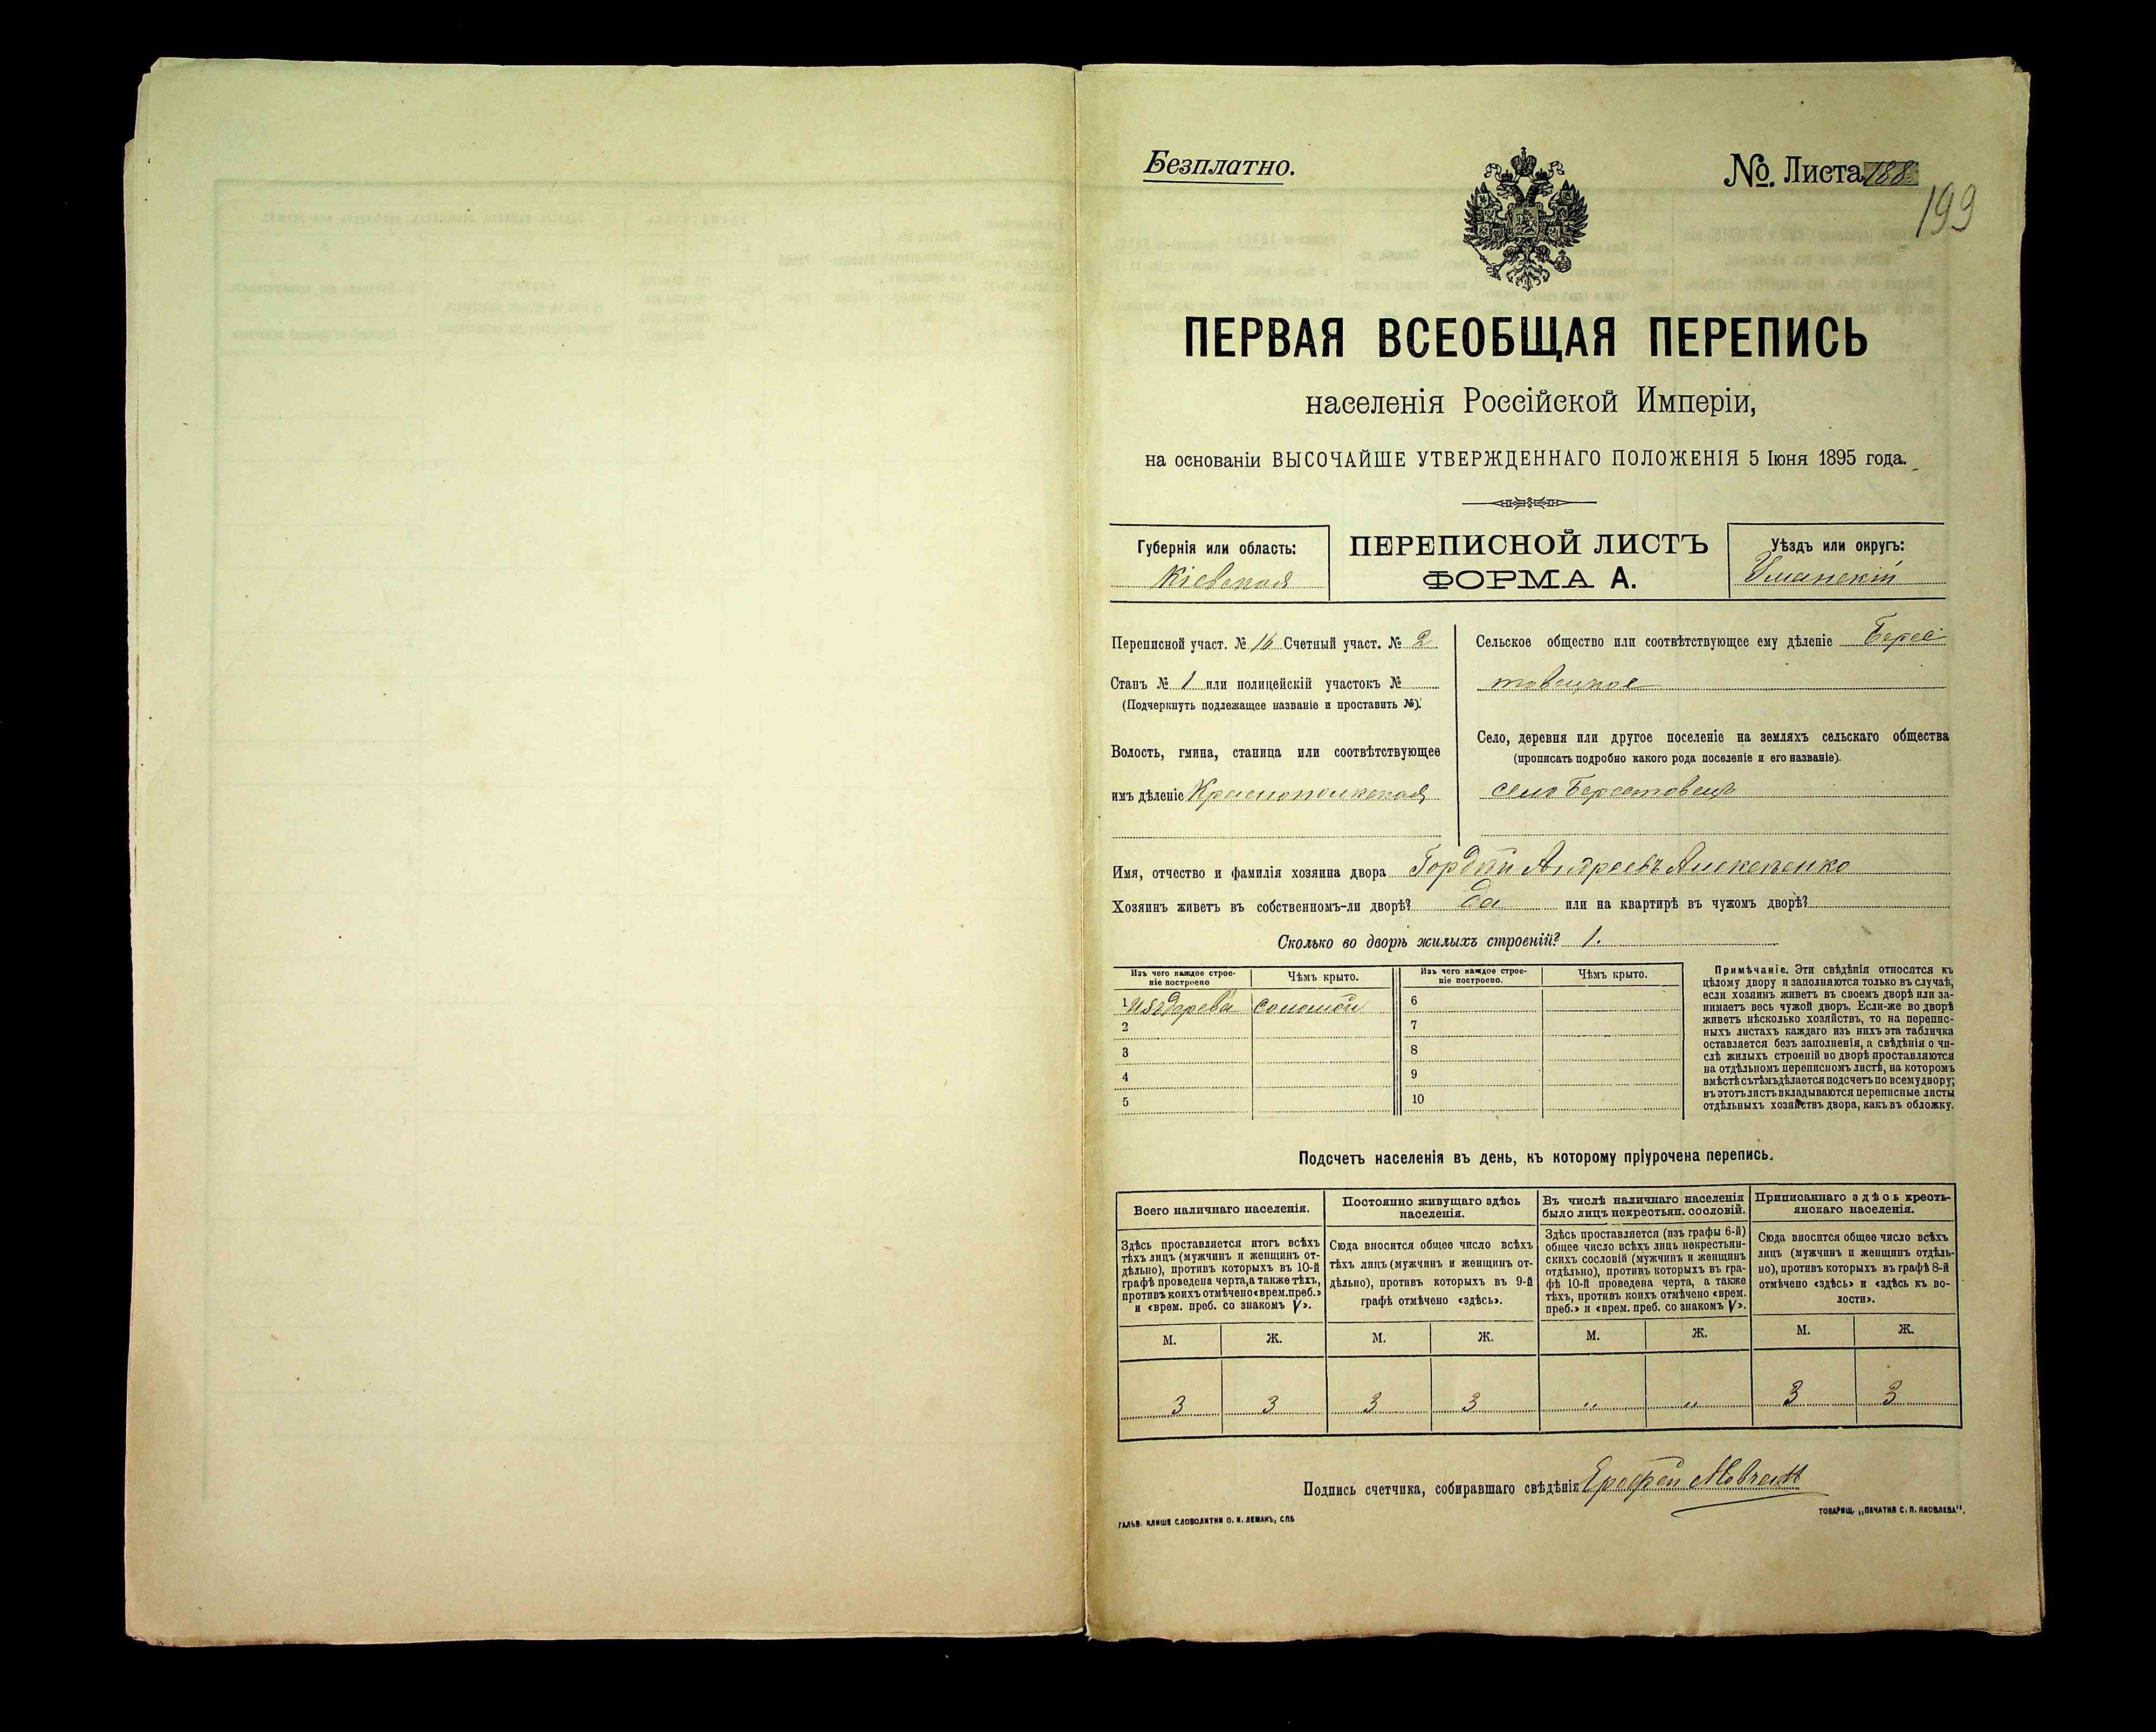 Безплатно.
№. Листа 188
199
ПЕРВАЯ ВСЕОБЩАЯ ПЕРЕПИСЬ
населенія Россійской Имперіи,
на основаніи ВЫСОЧАЙШЕ УТВЕРЖДЕННАГО ПОЛОЖЕНІЯ 5 Іюня 1895 года.
Губернія или область:
Кіевская
ПЕРЕПИСНОЙ ЛИСТЪ
ФОРМА А.
Уѣздъ или округъ:
Уманскій
Переписной участ. № 16 Счетный участ. № 2
Станъ № 1 или полицейскій участокъ №
(Подчеркнуть подлежащее названіе и проставить №).
Волость, гмина, станица или соотвѣтствующее
имъ дѣленіе Краснопольская
Сельское общество или соотвѣтствующее ему дѣленіе Берес
товецкое
Село, деревня или другое поселеніе на земляхъ сельскаго общества
(прописать подробно какого рода поселеніе и его названіе).
село Берестовецъ
Имя, отчество и фамилія хозяина двора Гордѣй Андреевъ Алексѣенко
Хозяинъ живетъ въ собственномъ-ли дворѣ? да или на квартирѣ въ чужомъ дворѣ?
Сколько во дворѣ жилыхъ строеній? 1.
Изъ чего каждое строе-
ніе построено
Чѣмъ крыто.
Изъ чего каждое строе-
ніе построено.
Чѣмъ крыто.
1 изъ дерева соломой
2
3
4
5
6
7
8
9
10
Примѣчаніе. Эти свѣдѣнія относятся къ
цѣлому двору и заполняются только въ случаѣ,
если хозяинъ живетъ въ своемъ дворѣ или за-
нимаетъ весь чужой дворъ. Если-же во дворѣ
живетъ нѣсколько хозяйствъ, то на перепис-
ныхъ листахъ каждаго изъ нихъ эта табличка
оставляется безъ заполненія, а свѣдѣнія о чи-
слѣ жилыхъ строеній во дворѣ проставляются
на отдѣльномъ переписномъ листѣ, на которомъ
вмѣстѣ съ тѣмъ дѣлается подсчетъ по всему двору;
въ этотъ листъ вкладываются переписные листы
отдѣльныхъ хозяйствъ двора, какъ въ обложку.
Подсчетъ населенія въ день, къ которому пріурочена перепись.
Всего наличнаго населенія.
Здѣсь проставляется итогъ всѣхъ
тѣхъ лицъ (мужчинъ и женщинъ от-
дѣльно), противъ которыхъ въ 10-й
графѣ проведена черта, а также тѣхъ,
противъ коихъ отмѣчено «врем. преб.»
и «врем. преб. со знакомъ V».
Постоянно живущаго здѣсь
населенія.
Сюда вносится общее число всѣхъ
тѣхъ лицъ (мужчинъ и женщинъ от-
дѣльно), противъ которыхъ въ 9-й
графѣ отмѣчено «здѣсь».
Въ числѣ наличнаго населенія
было лицъ некрестьян. сословій.
Здѣсь проставляется (изъ графы 6-й)
общее число всѣхъ лицъ некрестьян-
скихъ сословій (мужчинъ и женщинъ
отдѣльно), противъ которыхъ въ гра-
фѣ 10-й проведена черта, а также
тѣхъ, противъ коихъ отмѣчено «врем.
преб.» и «врем. преб. со знакомъ V».
Приписаннаго здѣсь кресть-
янскаго населенія.
Сюда вносится общее число всѣхъ
лицъ (мужчинъ и женщинъ отдѣль-
но), противъ которыхъ въ графѣ 8-й
отмѣчено «здѣсь» и «здѣсь къ во-
лости».
М. Ж. М. Ж. М. Ж. М. Ж.
3 3 3 3 „ „ 3 3
Подпись счетчика, собиравшаго свѣдѣнія Ерофей
ГАЛЬВ. КЛИШЕ СЛОВОЛИТНИ О. И. ЛЕМАНЪ, СПБ
ТОВАРИЩ. „ПЕЧАТНЯ С. П. ЯКОВЛЕВА".